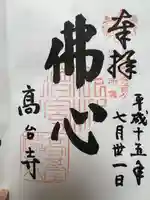 奉拝
平成十五年
七月廿一日
佛心
高台寺